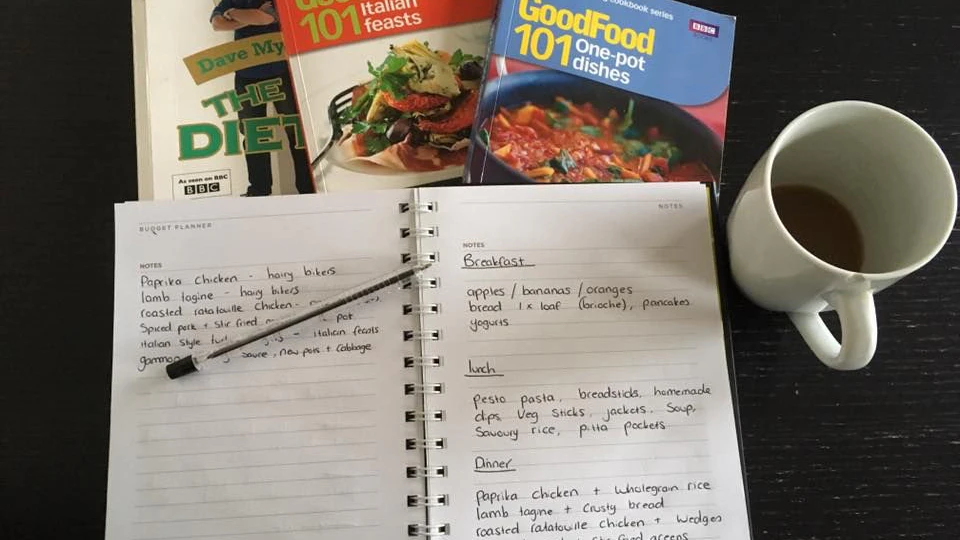 Dave My
THE
DIET
As seen on BBC
BBC
101 Italian
feasts
cookbook series
GoodFood
BBC
BOOKS
101 One-pot
dishes
BUDGET PLANNER
NOTES
Paprika Chicken - hairy bikers
lamb tagine - hairy bikers
roasted ratatouille Chicken -
Spiced pork + Stir fried pot
Italian Style - italian feasts
gammon sauce, new pots + Cabbage
NOTES
NOTES
Breakfast
apples / bananas / oranges
bread 1x loaf (brioche), pancakes
yogurts
lunch
pesto pasta, breadsticks, homemade
dips, Veg Sticks, jackets, Soup,
Savoury rice, pitta pockets
Dinner
paprika Chicken + Wholegrain rice
lamb tagine + Crusty bread
roasted ratatouille chicken + Wedges
greens